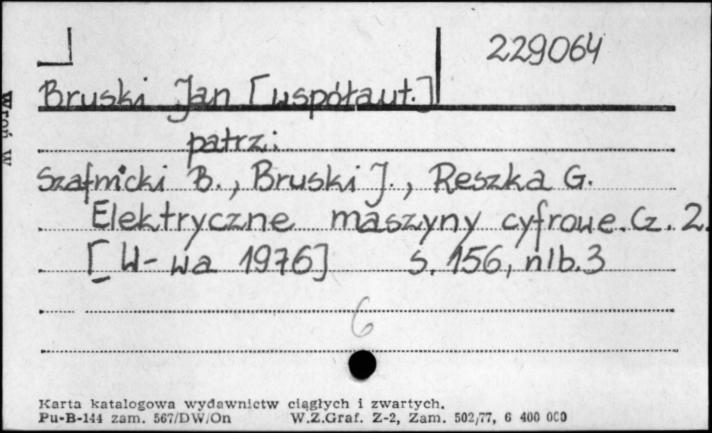 229064
Bruski Jan [współaut.]
patrz:
Szafnicki B., Bruski J., Reszka G.
Elektryczne maszyny cyfrowe. Cz. 2.
[W-wa 1976] s. 156, nlb. 3
6
Karta katalogowa wydawnictw ciągłych i zwartych.
Pu-B-144 zam. 567/DW/On W.Z.Graf. Z-2, Zam. 502/77, 6 400 000